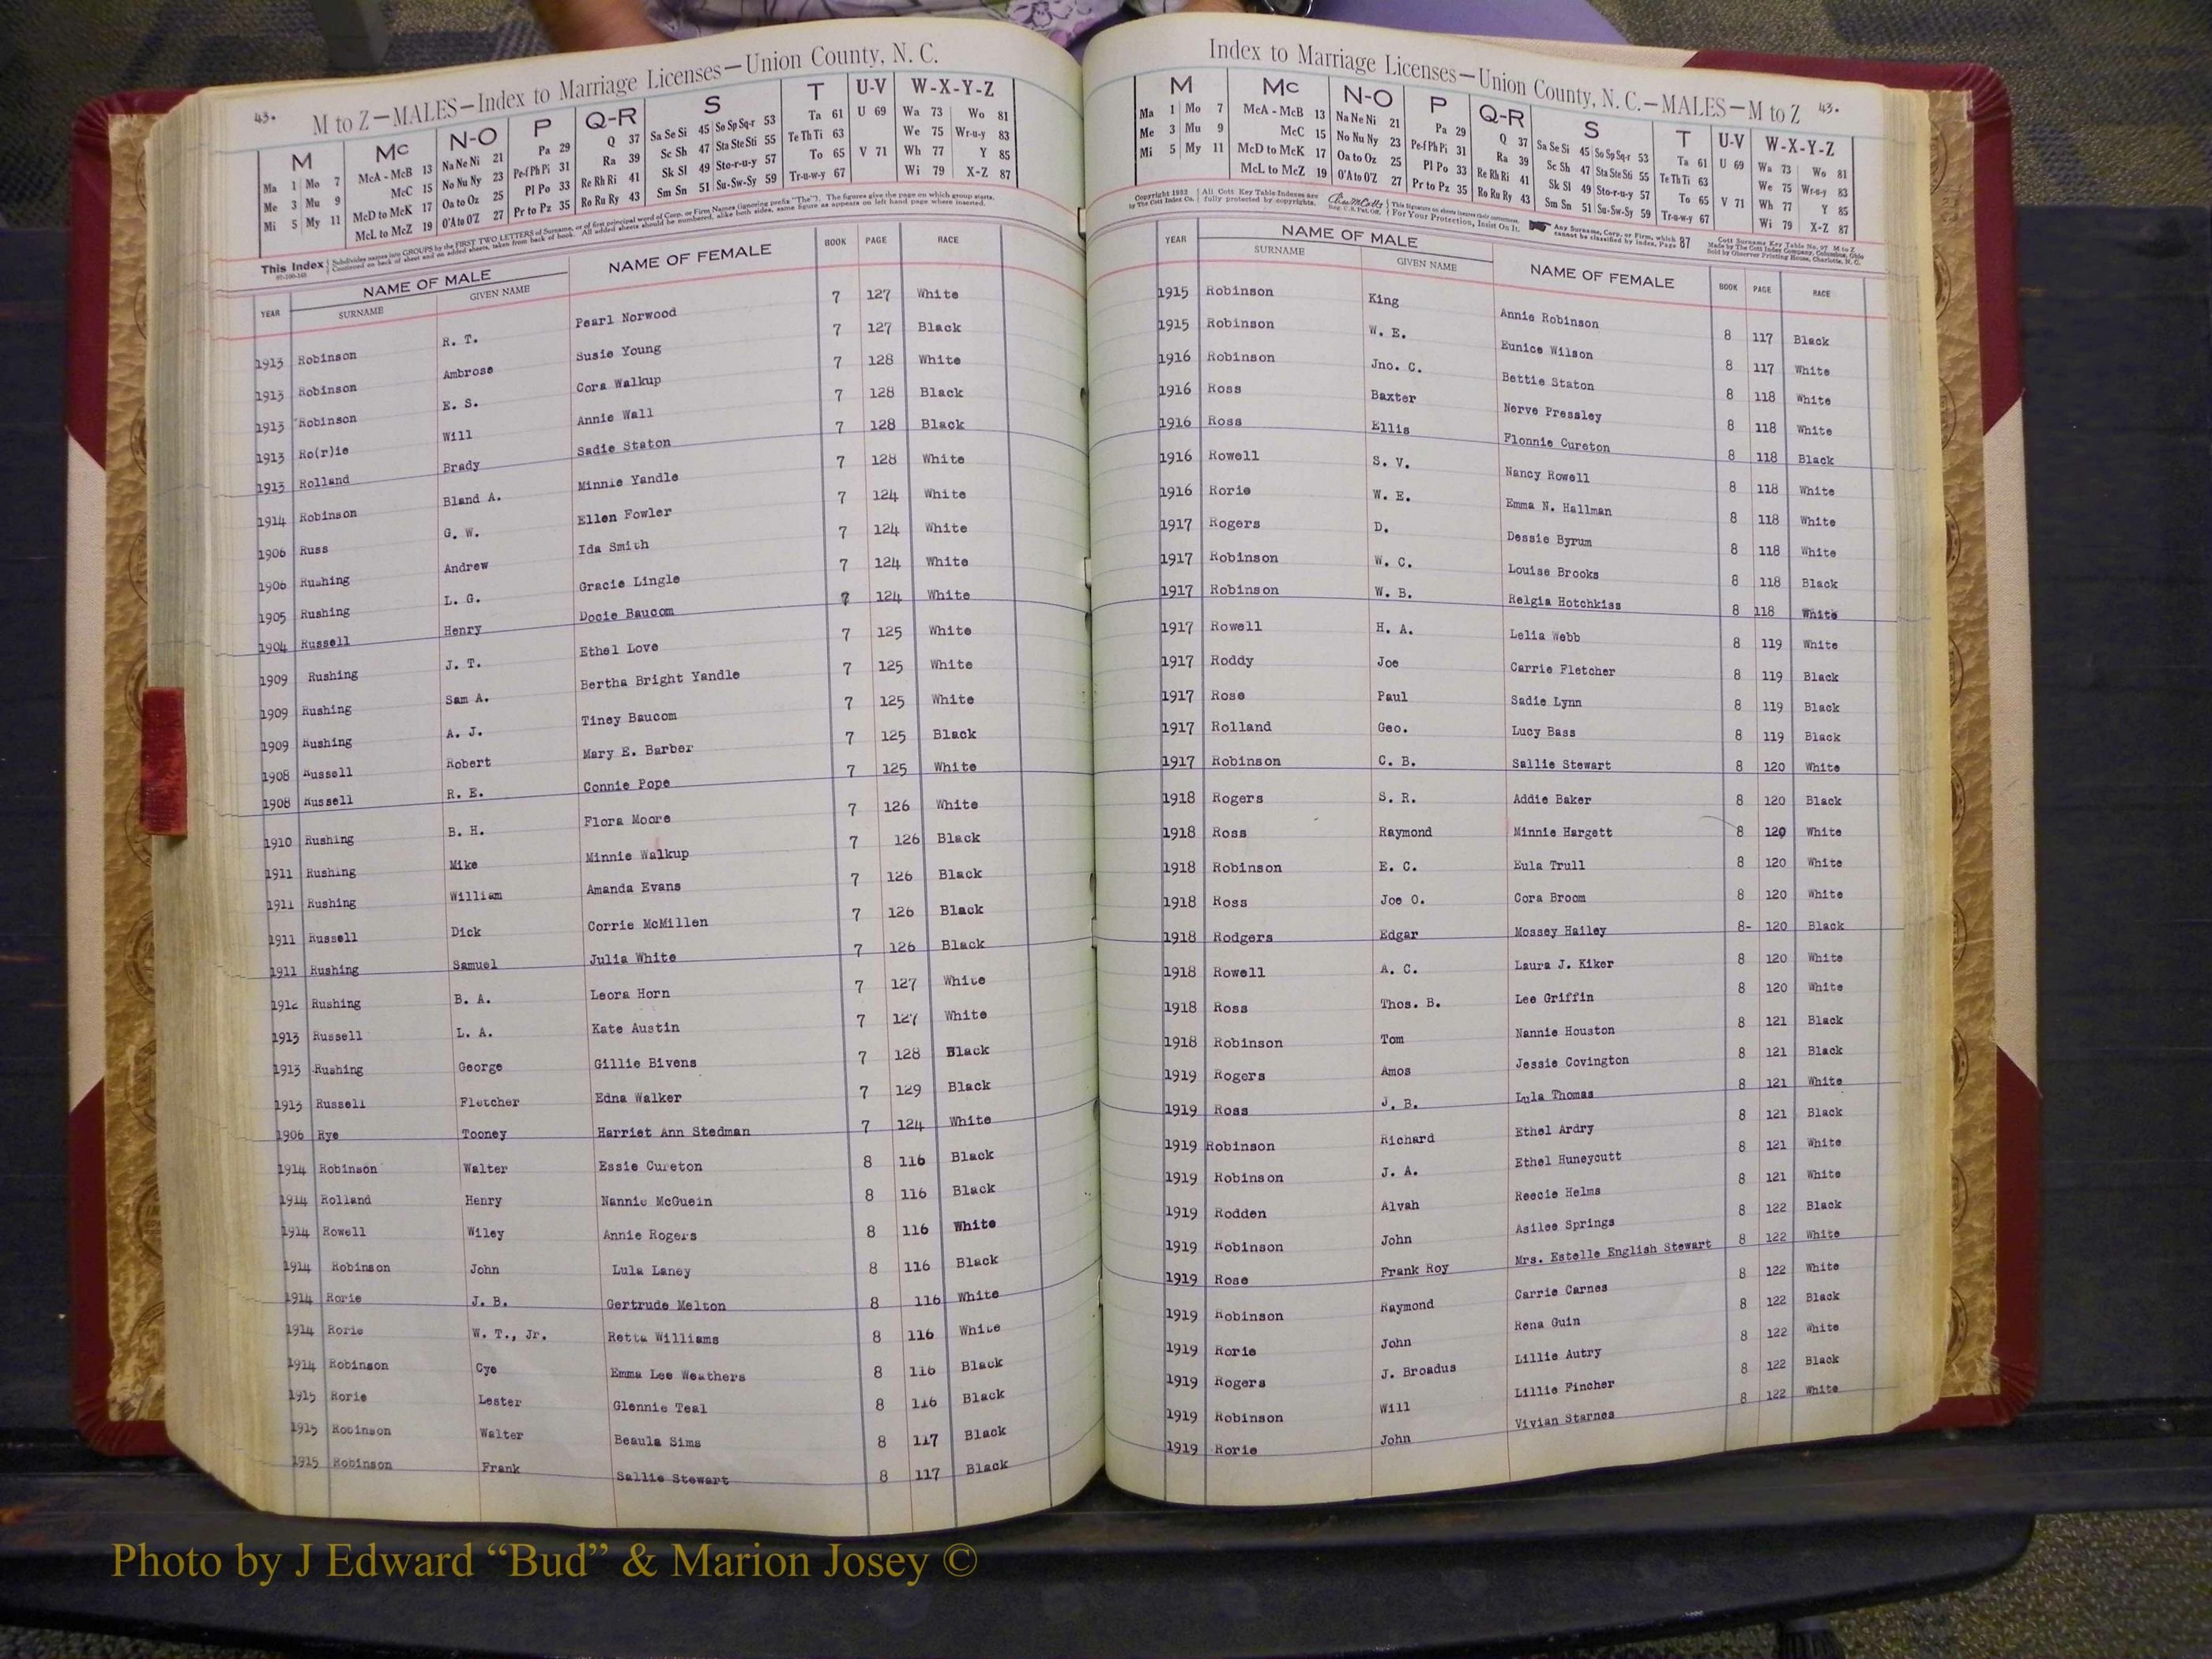 43. M to Z—MALES—Index to Marriage Licenses—Union County, N. C.
M Mc N-O P Q-R S T U-V W-X-Y-Z
Ma 1 Mo 7 McA - McB 13 Na Ne Ni 21 Pa 29 Q 37 Sa Se Si 45 So Sp Sq-r 53 Ta 61 U 69 Wa 73 Wo 81
Me 3 Mu 9 McC 15 No Nu Ny 23 Pe-f Ph Pi 31 Ra 39 Sc Sh 47 Sta Ste Sti 55 Te Th Ti 63 We 75 Wr-u-y 83
Mi 5 My 11 McD to McK 17 Oa to Oz 25 Pl Po 33 Re Rh Ri 41 Sk Sl 49 Sto-r-u-y 57 To 65 V 71 Wh 77 Y 85
McL to McZ 19 O'A to O'Z 27 Pr to Pz 35 Ro Ru Ry 43 Sm Sn 51 Su-Sw-Sy 59 Tr-u-w-y 67 Wi 79 X-Z 87
This Index Subdivides names into GROUPS by the FIRST TWO LETTERS of Surname, or of first principal word of Corp. or Firm Names (ignoring prefix "The"). The figures give the page on which group starts.
Continued on back of sheet and on added sheets, taken from back of book. All added sheets should be numbered, alike both sides, same figure as appears on left hand page where inserted.
YEAR NAME OF MALE NAME OF FEMALE BOOK PAGE RACE
SURNAME GIVEN NAME
1913 Robinson R. T. Pearl Norwood 7 127 White
1913 Robinson Ambrose Susie Young 7 127 Black
1913 Robinson E. S. Cora Walkup 7 128 White
1913 Ro(r)ie Will Annie Wall 7 128 Black
1913 Rolland Brady Sadie Staton 7 128 Black
1914 Robinson Bland A. Minnie Yandle 7 128 White
1906 Russ G. W. Ellen Fowler 7 124 White
1906 Rushing Andrew Ida Smith 7 124 White
1905 Rushing L. G. Gracie Lingle 7 124 White
1904 Russell Henry Docie Baucom 7 124 White
1909 Rushing J. T. Ethel Love 7 125 White
1909 Rushing Sam A. Bertha Bright Yandle 7 125 White
1909 Rushing A. J. Tiney Baucom 7 125 White
1908 Russell Robert Mary E. Barber 7 125 Black
1908 Russell R. E. Connie Pope 7 125 White
1910 Rushing B. H. Flora Moore 7 126 White
1911 Rushing Mike Minnie Walkup 7 126 Black
1911 Rushing William Amanda Evans 7 126 Black
1911 Russell Dick Corrie McMillen 7 126 Black
1911 Rushing Samuel Julia White 7 126 Black
1912 Rushing B. A. Leora Horn 7 127 White
1913 Russell L. A. Kate Austin 7 127 White
1913 Rushing George Gillie Bivens 7 128 Black
1913 Russell Fletcher Edna Walker 7 129 Black
1906 Rye Tooney Harriet Ann Stedman 7 124 White
1914 Robinson Walter Essie Cureton 8 116 Black
1914 Rolland Henry Nannie McGuein 8 116 Black
1914 Rowell Wiley Annie Rogers 8 116 White
1914 Robinson John Lula Laney 8 116 Black
1914 Rorie J. B. Gertrude Melton 8 116 White
1914 Rorie W. T., Jr. Retta Williams 8 116 White
1914 Robinson Cye Emma Lee Weathers 8 116 Black
1915 Rorie Lester Glennie Teal 8 116 Black
1915 Robinson Walter Beaula Sims 8 117 Black
1915 Robinson Frank Sallie Stewart 8 117 Black
Index to Marriage Licenses—Union County, N. C.—MALES—M to Z 43.
M Mc N-O P Q-R S T U-V W-X-Y-Z
Ma 1 Mo 7 McA - McB 13 Na Ne Ni 21 Pa 29 Q 37 Sa Se Si 45 So Sp Sq-r 53 Ta 61 U 69 Wa 73 Wo 81
Me 3 Mu 9 McC 15 No Nu Ny 23 Pe-f Ph Pi 31 Ra 39 Sc Sh 47 Sta Ste Sti 55 Te Th Ti 63 We 75 Wr-u-y 83
Mi 5 My 11 McD to McK 17 Oa to Oz 25 Pl Po 33 Re Rh Ri 41 Sk Sl 49 Sto-r-u-y 57 To 65 V 71 Wh 77 Y 85
McL to McZ 19 O'A to O'Z 27 Pr to Pz 35 Ro Ru Ry 43 Sm Sn 51 Su-Sw-Sy 59 Tr-u-w-y 67 Wi 79 X-Z 87
Copyright 1932 by The Cott Index Co. All Cott Key Table Indexes are fully protected by copyrights. This signature on sheets insures their correctness. For Your Protection, Insist On It. Any Surname, Corp. or Firm, which cannot be classified by Index, Page 87
Cott Surname Key Table No. 97 M to Z
Made by The Cott Index Company, Columbus, Ohio
Sold by Observer Printing House, Charlotte, N. C.
YEAR NAME OF MALE NAME OF FEMALE BOOK PAGE RACE
SURNAME GIVEN NAME
1915 Robinson King Annie Robinson 8 117 Black
1915 Robinson W. E. Eunice Wilson 8 117 White
1916 Robinson Jno. C. Bettie Staton 8 118 White
1916 Ross Baxter Nerve Pressley 8 118 White
1916 Ross Ellis Flonnie Cureton 8 118 Black
1916 Rowell S. V. Nancy Rowell 8 118 White
1916 Rorie W. E. Emma N. Hallman 8 118 White
1917 Rogers D. Dessie Byrum 8 118 White
1917 Robinson W. C. Louise Brooks 8 118 Black
1917 Robinson W. B. Relgia Hotchkiss 8 118 White
1917 Rowell H. A. Lelia Webb 8 119 White
1917 Roddy Joe Carrie Fletcher 8 119 Black
1917 Rose Paul Sadie Lynn 8 119 Black
1917 Rolland Geo. Lucy Bass 8 119 Black
1917 Robinson C. B. Sallie Stewart 8 120 White
1918 Rogers S. R. Addie Baker 8 120 Black
1918 Ross Raymond Minnie Hargett 8 120 White
1918 Robinson E. C. Eula Trull 8 120 White
1918 Ross Joe O. Cora Broom 8 120 White
1918 Rodgers Edgar Mossey Hailey 8- 120 Black
1918 Rowell A. C. Laura J. Kiker 8 120 White
1918 Ross Thos. B. Lee Griffin 8 120 White
1918 Robinson Tom Nannie Houston 8 121 Black
1919 Rogers Amos Jessie Covington 8 121 Black
1919 Ross J. B. Lula Thomas 8 121 White
1919 Robinson Richard Ethel Ardry 8 121 Black
1919 Robinson J. A. Ethel Huneycutt 8 121 White
1919 Rodden Alvah Reecie Helms 8 121 White
1919 Robinson John Asilee Springs 8 122 Black
1919 Rose Frank Roy Mrs. Estelle English Stewart 8 122 White
1919 Robinson Raymond Carrie Carnes 8 122 White
1919 Rorie John Rena Guin 8 122 Black
1919 Rogers J. Broadus Lillie Autry 8 122 White
1919 Robinson Will Lillie Fincher 8 122 Black
1919 Rorie John Vivian Starnes 8 122 White
Photo by J Edward “Bud” & Marion Josey ©